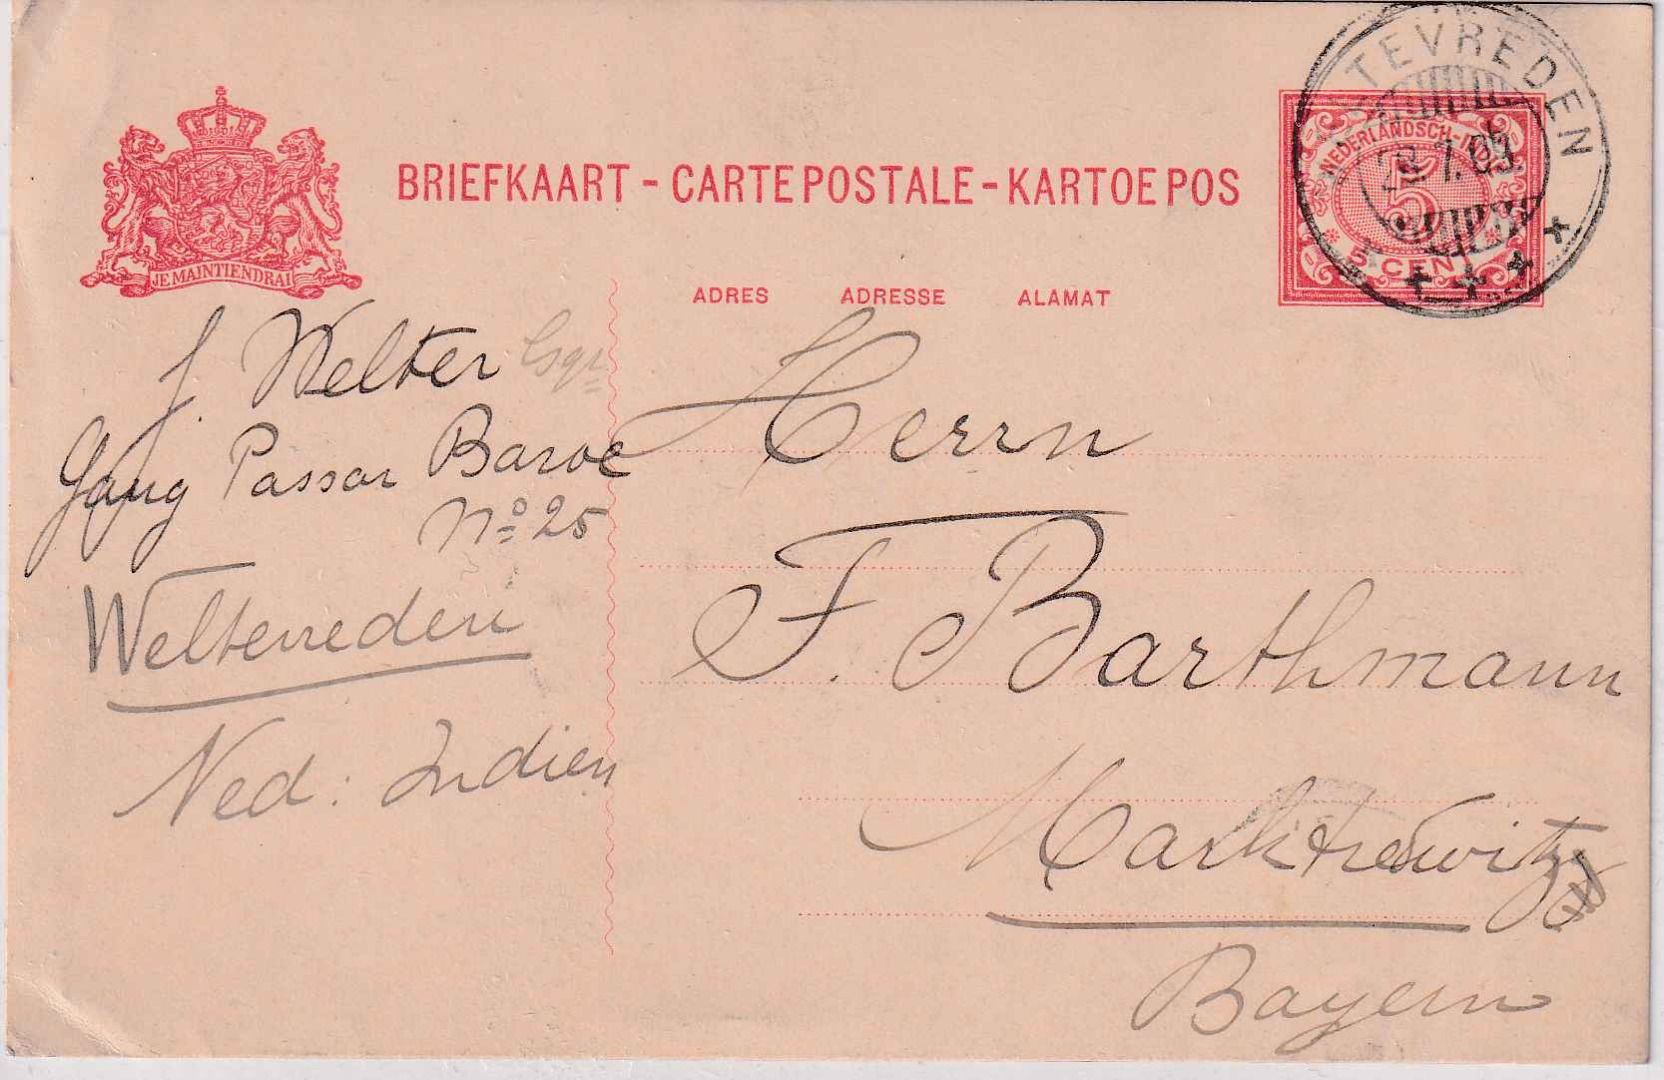 BRIEFKAART - CARTE POSTALE - KARTOE POS
JE MAINTIENDRAI
ADRES ADRESSE ALAMAT
NEDERLANDSCH-
5
5 CENT
TEVREDEN
J. Welter Esqr
Gang Passar Baroe
No 25
Weltevreden
Ned: Indien
Herrn
F. Barthmann
Marktredwitz
Bayern